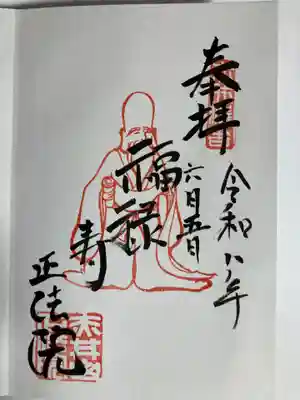 奉拝
令和八年
六月五日
福禄
寿
正法院